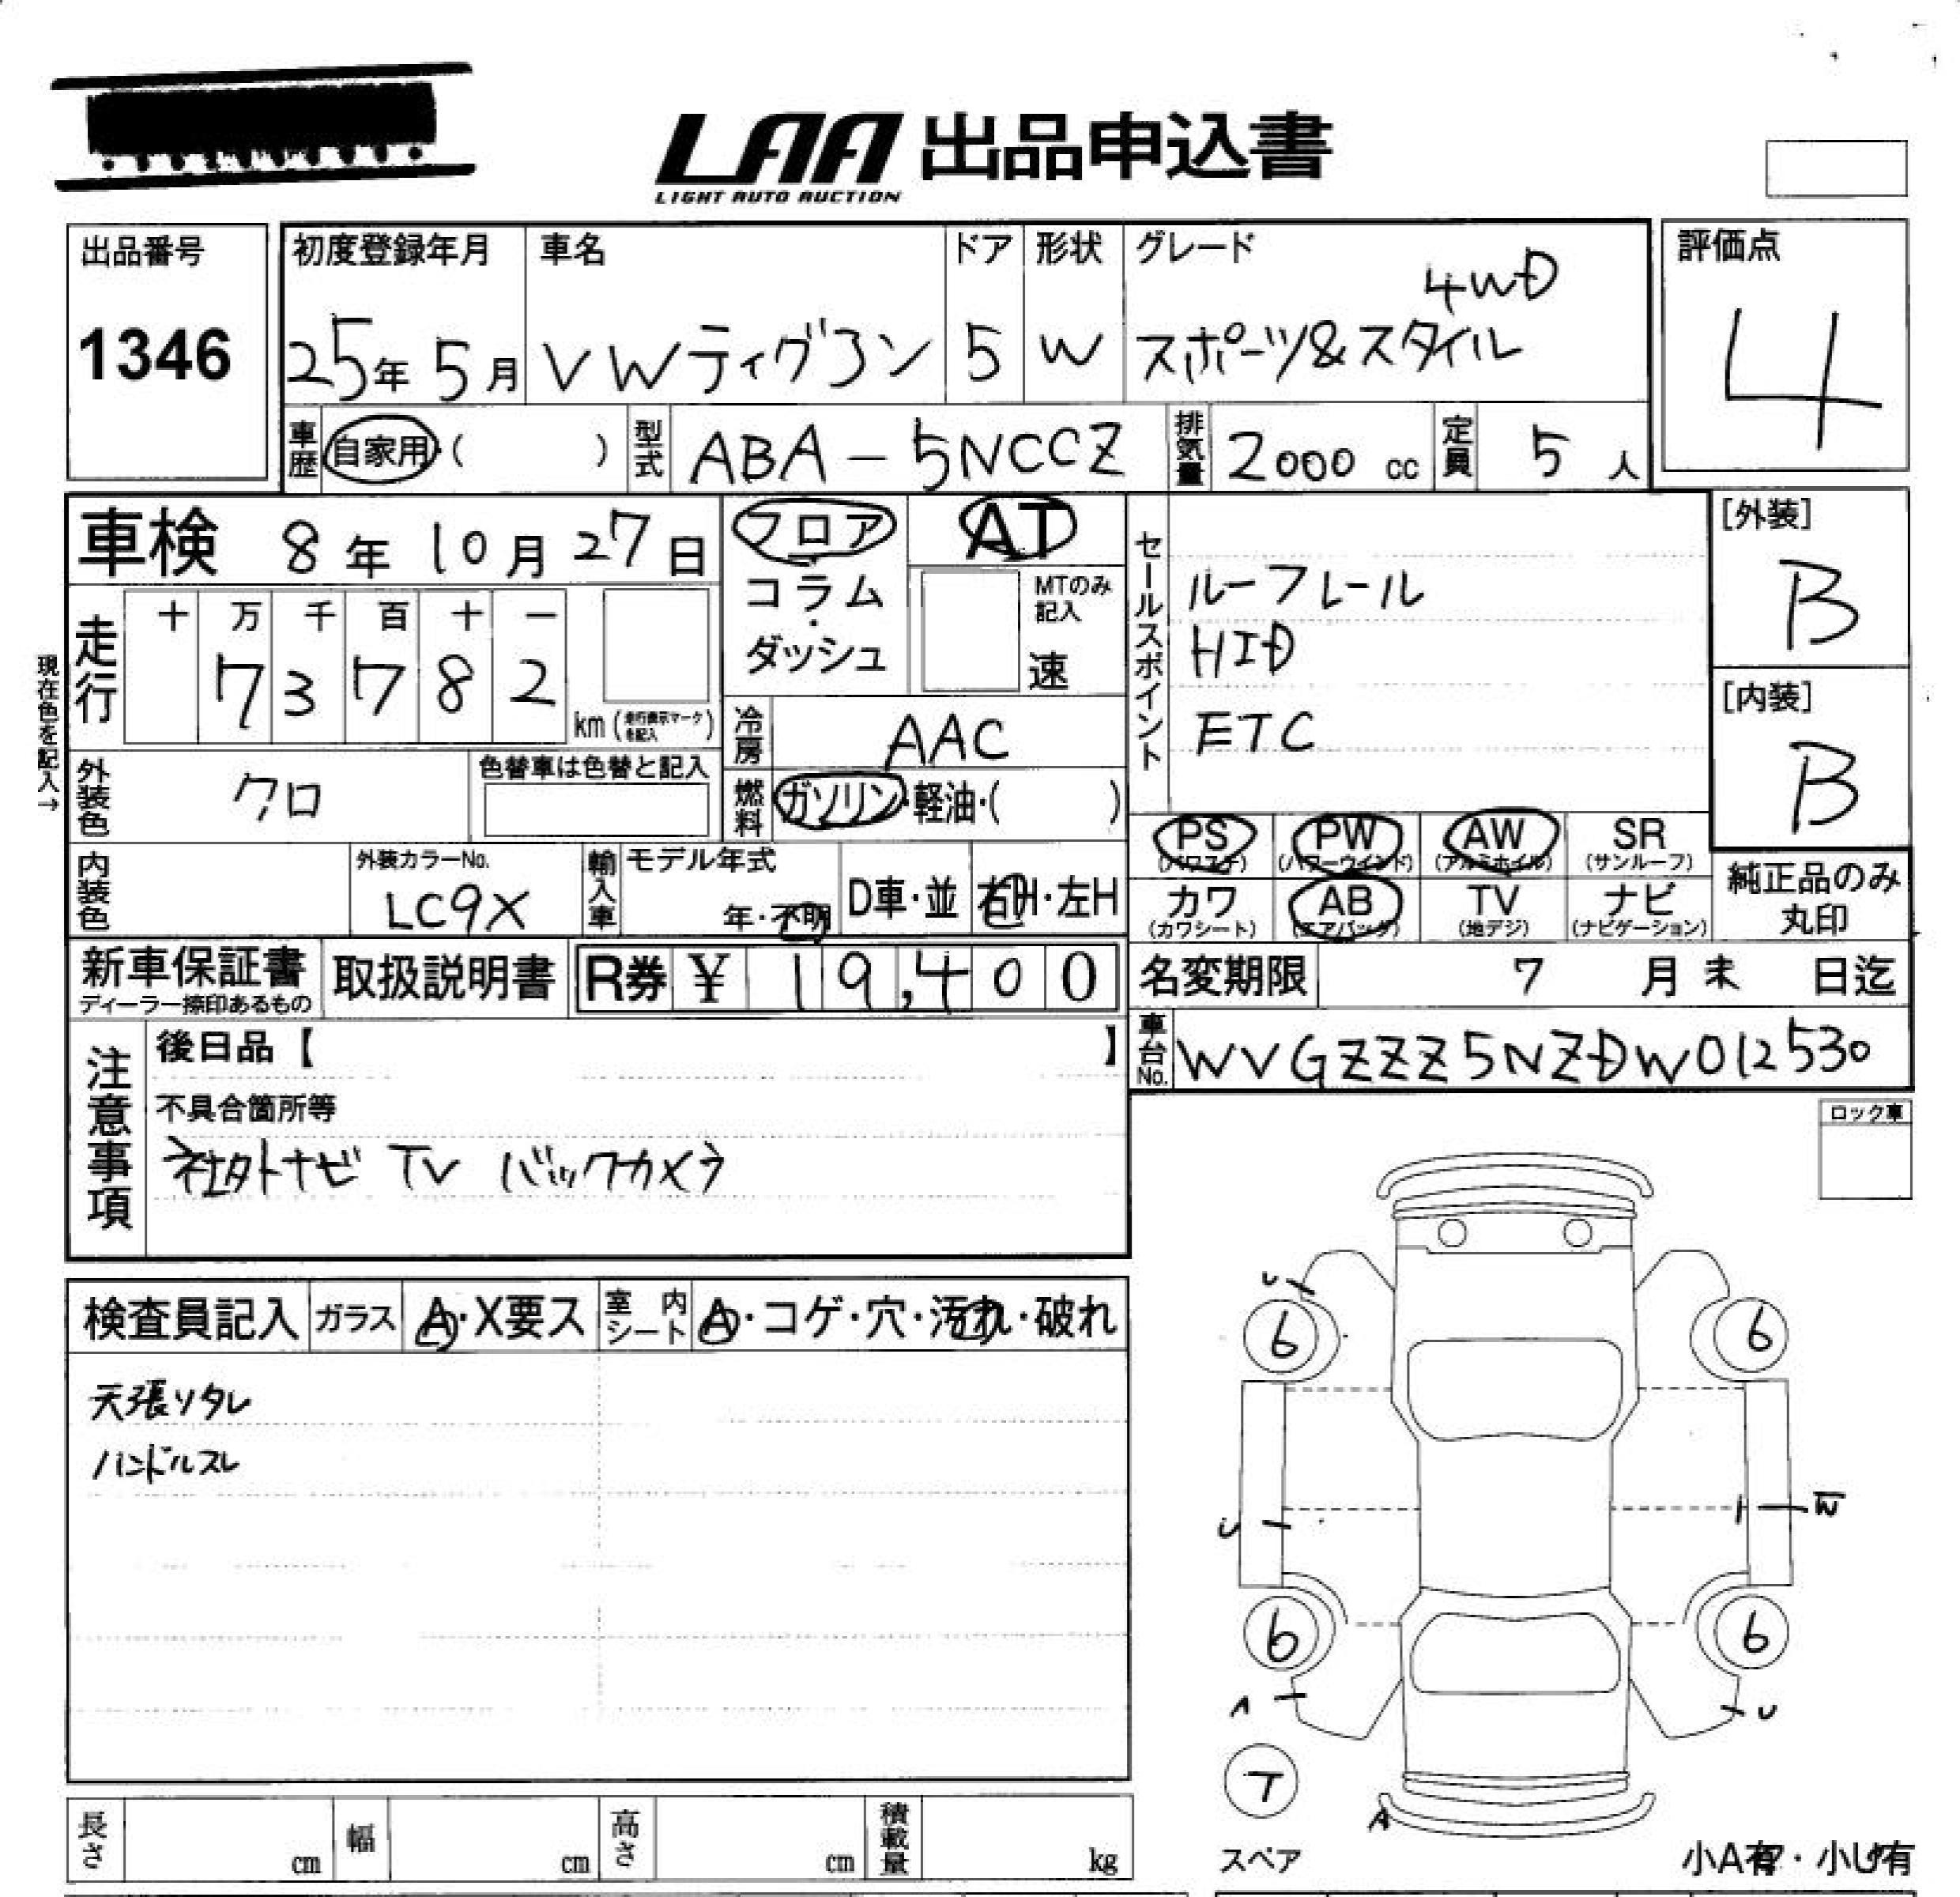 LAA 出品申込書
LIGHT AUTO AUCTION
出品番号
1346
初度登録年月
25年 5月
車名
VWティグアン
ドア
5
形状
W
グレード
4WD
スポーツ&スタイル
評価点
4
車歴 自家用・( )
型式 ABA-5NCCZ
排気量 2000 cc
定員 5 人
車検 8年 10月 27日
フロア・コラム・ダッシュ
AT
MTのみ記入
速
セールスポイント
ルーフレール
HID
ETC
[外装]
B
[内装]
B
現在色を記入→
走行
十 万 千 百 十 一
7 3 7 8 2
km (走行表示マークを記入)
冷房 AAC
外装色 クロ
色替車は色替と記入
燃料 ガソリン・軽油・( )
PS (パワステ) PW (パワーウインド) AW (アルミホイル) SR (サンルーフ)
カワ (カワシート) AB (エアバッグ) TV (地デジ) ナビ (ナビゲーション)
純正品のみ丸印
内装色
外装カラーNo.
LC9X
輸入車
モデル年式
年・不明
D車・並
右H・左H
新車保証書
ディーラー捺印あるもの
取扱説明書
R券 ¥ 19,400
名変期限 7 月 末 日迄
車台No. WVGZZZ5NZDW012530
注意事項
後日品【 】
不具合箇所等
社外ナビ TV バックカメラ
ロック車
検査員記入 ガラス A・X要ス 室内シート A・コゲ・穴・汚れ・破れ
天張りタレ
ハンドルスレ
U
6 6
U W
6 6
A U
T
A
スペア
小A有・小U有
長さ cm 幅 cm 高さ cm 積載量 kg